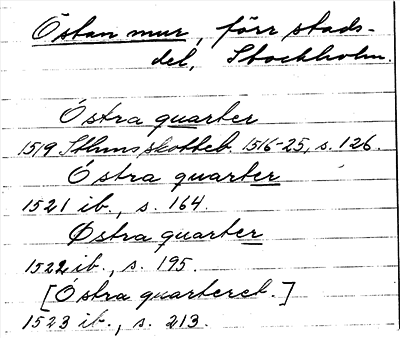 Östan mur, förr stads-
del, Stockholm.
Óstra quarter
1519 Sthms skotteb. 1516-25, s. 126.
Óstra quarter
1521 ib., s. 164.
Østra quarter
1522 ib., s. 195.
[Óstra quarteret.]
1523 ib., s. 213.